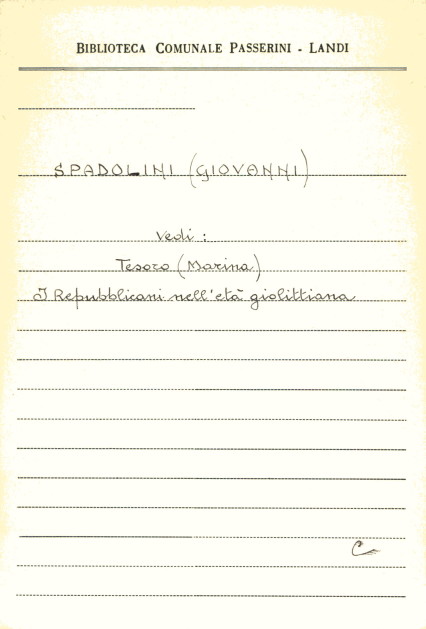 BIBLIOTECA COMUNALE PASSERINI - LANDI
SPADOLINI (GIOVANNI)
Vedi :
Tesoro (Marina)
I Repubblicani nell'età giolittiana
C